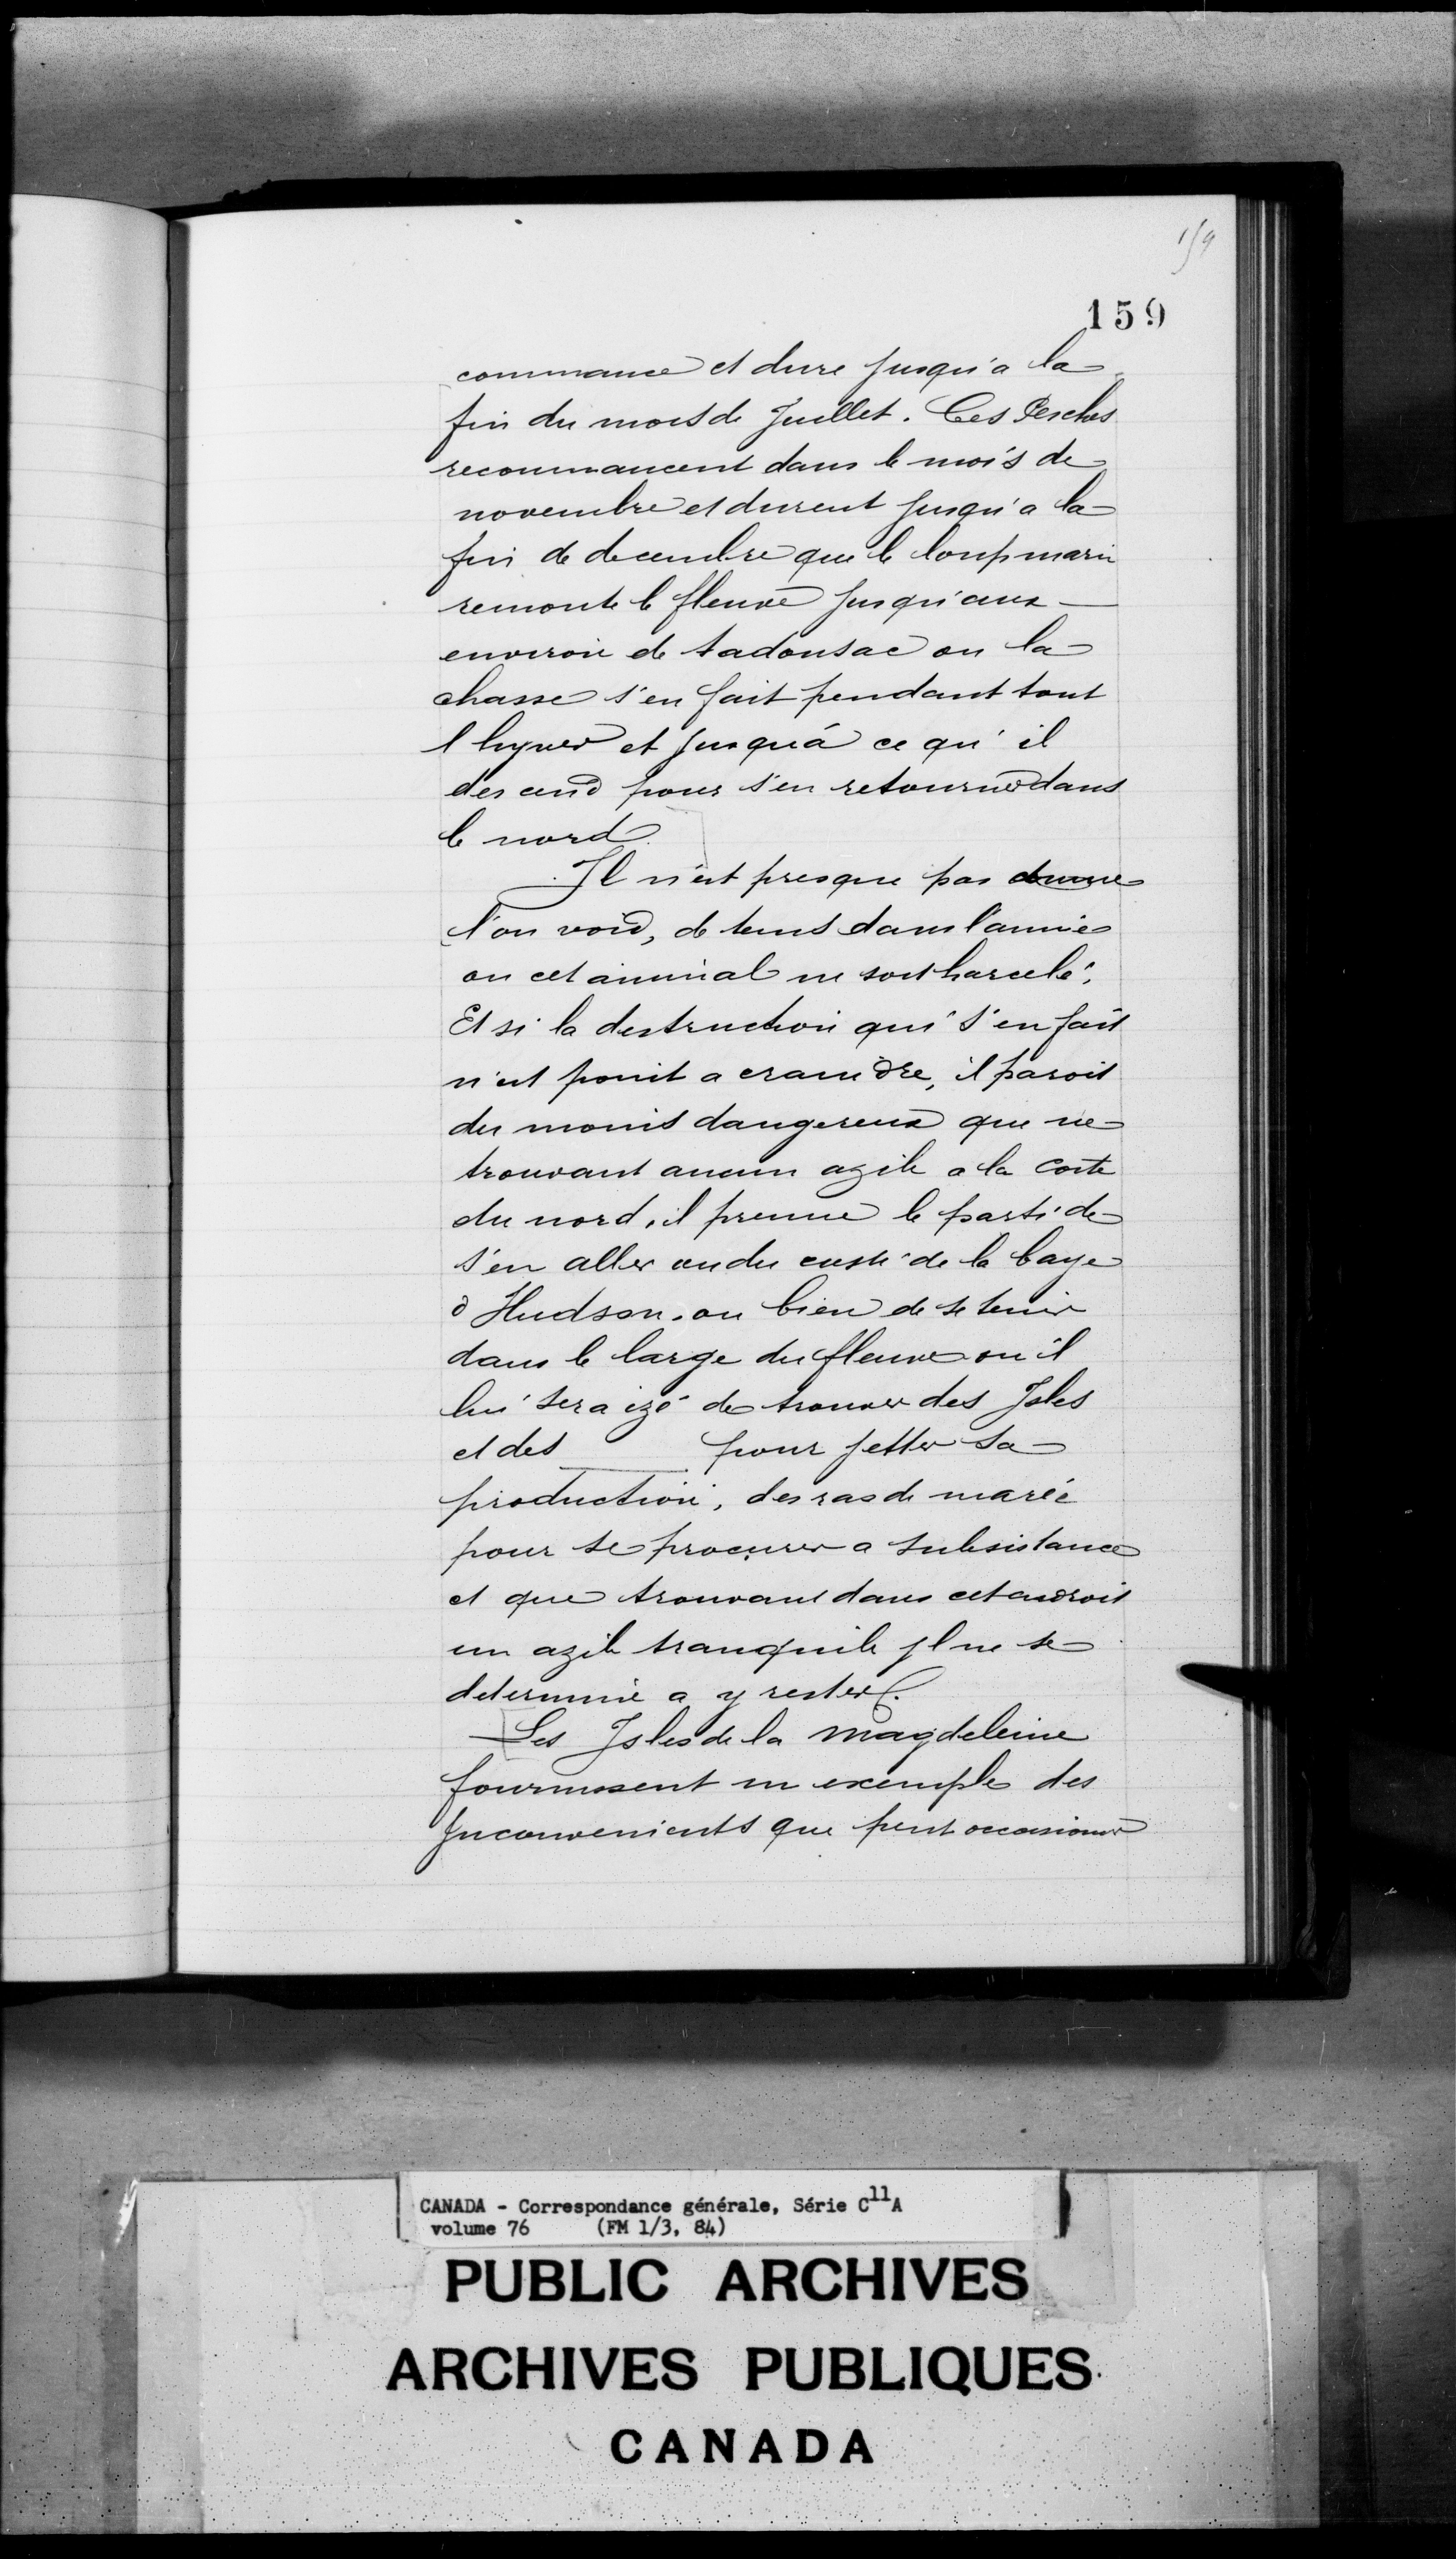 159
159
commance et dure jusqu'a la
fin du mois de Juillet. Ces Pesches
recommancent dans le mois de
novembre et durent jusqu'a la
fin de decembre que le loup marin
remonte le fleuve jusqu'aux
environ de tadousac ou la
chasse s'en fait pendant tout
l hyver et jusquá ce qu' il
descend pour s'en retourner dans
le nord.
Il n'est presque pas
l'on void, de tems dans l'année
ou cet animal ne soit harcelé,
Et si la destruction qui s'en fait
n'est point a craindre, il paroit
du moins dangereux que ne
trouvant aucun azile a la coste
du nord, il prenne le parti de
s'en aller du costé de la baye
d Hudson. ou bien de se tenir
dans le large du fleuve ou il
lui sera izé de trouver des Isles
et des pour jetter sa
production, des ras de marée
pour se procurer a subsistance
et que trouvant dans cet androit
un azile tranquile jl ne se
determine a y rester.
Les Isles de la Magdeleine
fournissent un exemple des
Jnconvenients que peut occasionner
CANADA - Correspondance générale, Série C11A
volume 76 (FM 1/3, 84)
PUBLIC ARCHIVES
ARCHIVES PUBLIQUES
CANADA